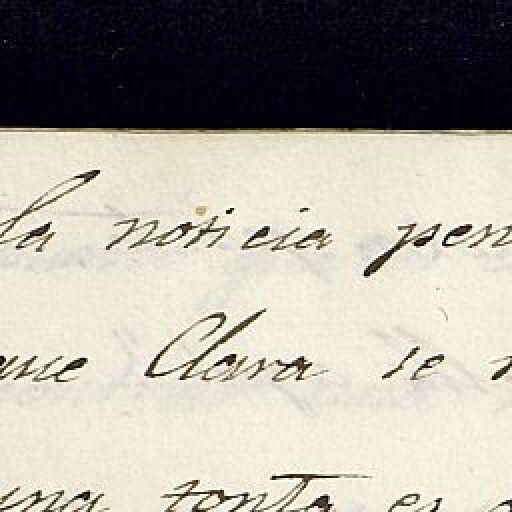 la noticia pen
que Clara se
una tonta es